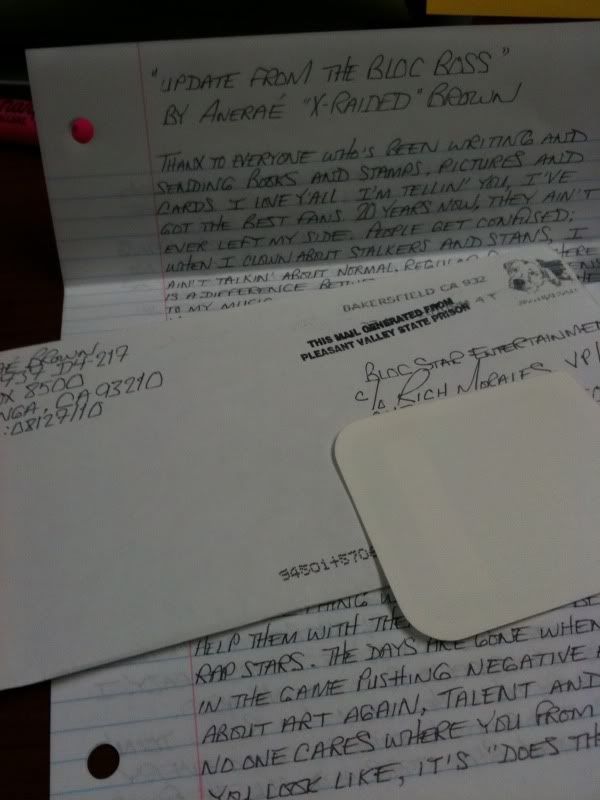 "UPDATE FROM THE BLOC BOSS"
BY ANERAÉ "X-RAIDED" BROWN
THANX TO EVERYONE WHO'S BEEN WRITING AND
SENDING BOOKS AND STAMPS, PICTURES AND
CARDS. I LOVE Y'ALL. I'M TELLIN' YOU, I'VE
GOT THE BEST FANS. 20 YEARS NOW, THEY AIN'T
EVER LEFT MY SIDE. PEOPLE GET CONFUSED;
WHEN I CLOWN ABOUT STALKERS AND STANS, I
AIN'T TALKIN' ABOUT NORMAL,
IS A DIFFERENCE
TO MY
BAKERSFIELD CA 932
THIS MAIL GENERATED FROM
PLEASANT VALLEY STATE PRISON
4 T
BROWN
D4-217
8500
NGA, CA 93210
:08/27/10
BLOC STAR ENTERTAINMEN
C/O RICH MORALES, VP
94501+570
HELP THEM WITH THE
RAP STARS. THE DAYS ARE GONE WHEN
IN THE GAME PUSHING NEGATIVE
ABOUT ART AGAIN, TALENT AND
NO ONE CARES WHERE YOU FROM
YOU LOOK LIKE, IT'S "DOES TH